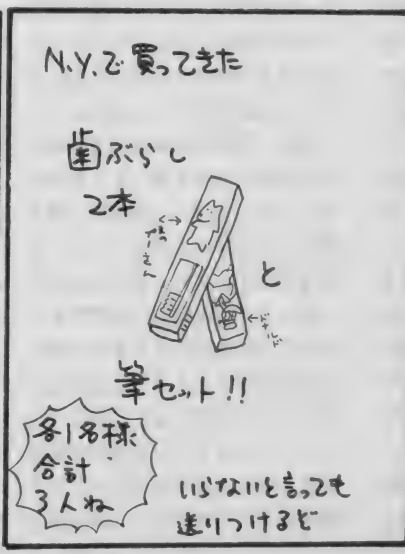 N.Y.で買ってきた
歯ぶらし
2本
くまの
プーさん
と
ドナルド
筆セット!!
各1名様
合計
3人ね
いらないと言っても
送りつけるど